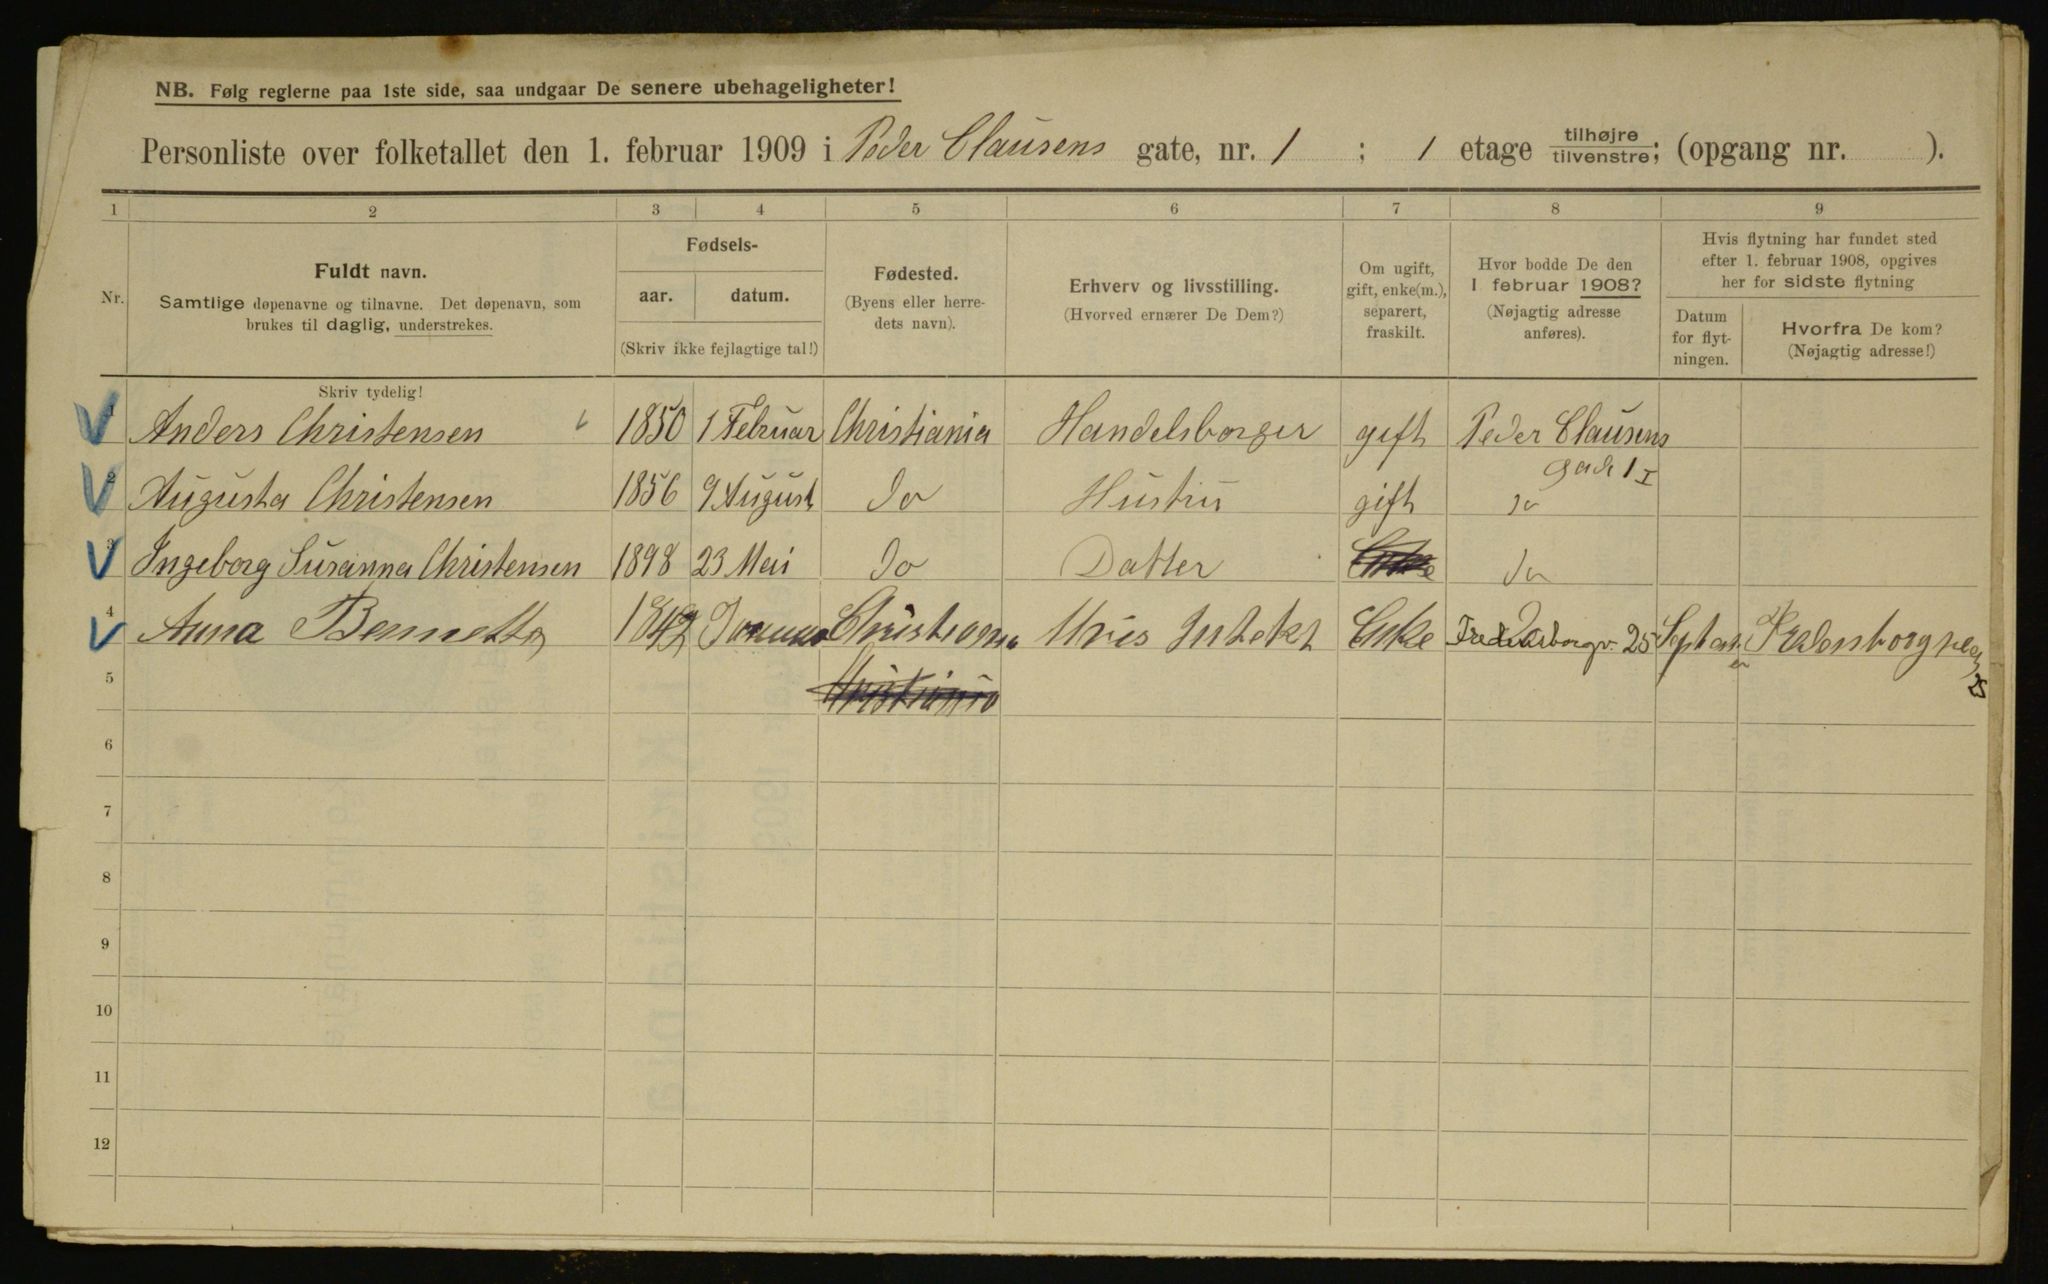 NB. Følg reglerne paa 1ste side, saa undgaar De senere ubehageligheter!
Personliste over folketallet den 1. februar 1909 i Peder Clausens gate, nr. 1 ; 1 etage tilhøjre/tilvenstre; (opgang nr. ).
1 2 3 4 5 6 7 8 9
Nr.
Fuldt navn.
Samtlige døpenavne og tilnavne. Det døpenavn, som
brukes til daglig, understrekes.
Fødsels-
aar. datum.
(Skriv ikke fejlagtige tal!)
Fødested.
(Byens eller herre-
dets navn).
Erhverv og livsstilling.
(Hvorved ernærer De Dem?)
Om ugift,
gift, enke(m.),
separert,
fraskilt.
Hvor bodde De den
1 februar 1908?
(Nøjagtig adresse
anføres).
Hvis flytning har fundet sted
efter 1. februar 1908, opgives
her for sidste flytning
Datum
for flyt-
ningen.
Hvorfra De kom?
(Nøjagtig adresse!)
Skriv tydelig!
1 Anders Christensen 1850 1 Februar Christiania Handelsborger gift Peder Clausens
gade 1 I
2 Augusta Christensen 1856 9 August do Hustru gift do
3 Ingeborg Susanna Christensen 1898 23 Mai do Datter Enke do
4 Anna 1842 Christiania Enke 25
25
5 Christiania
6
7
8
9
10
11
12